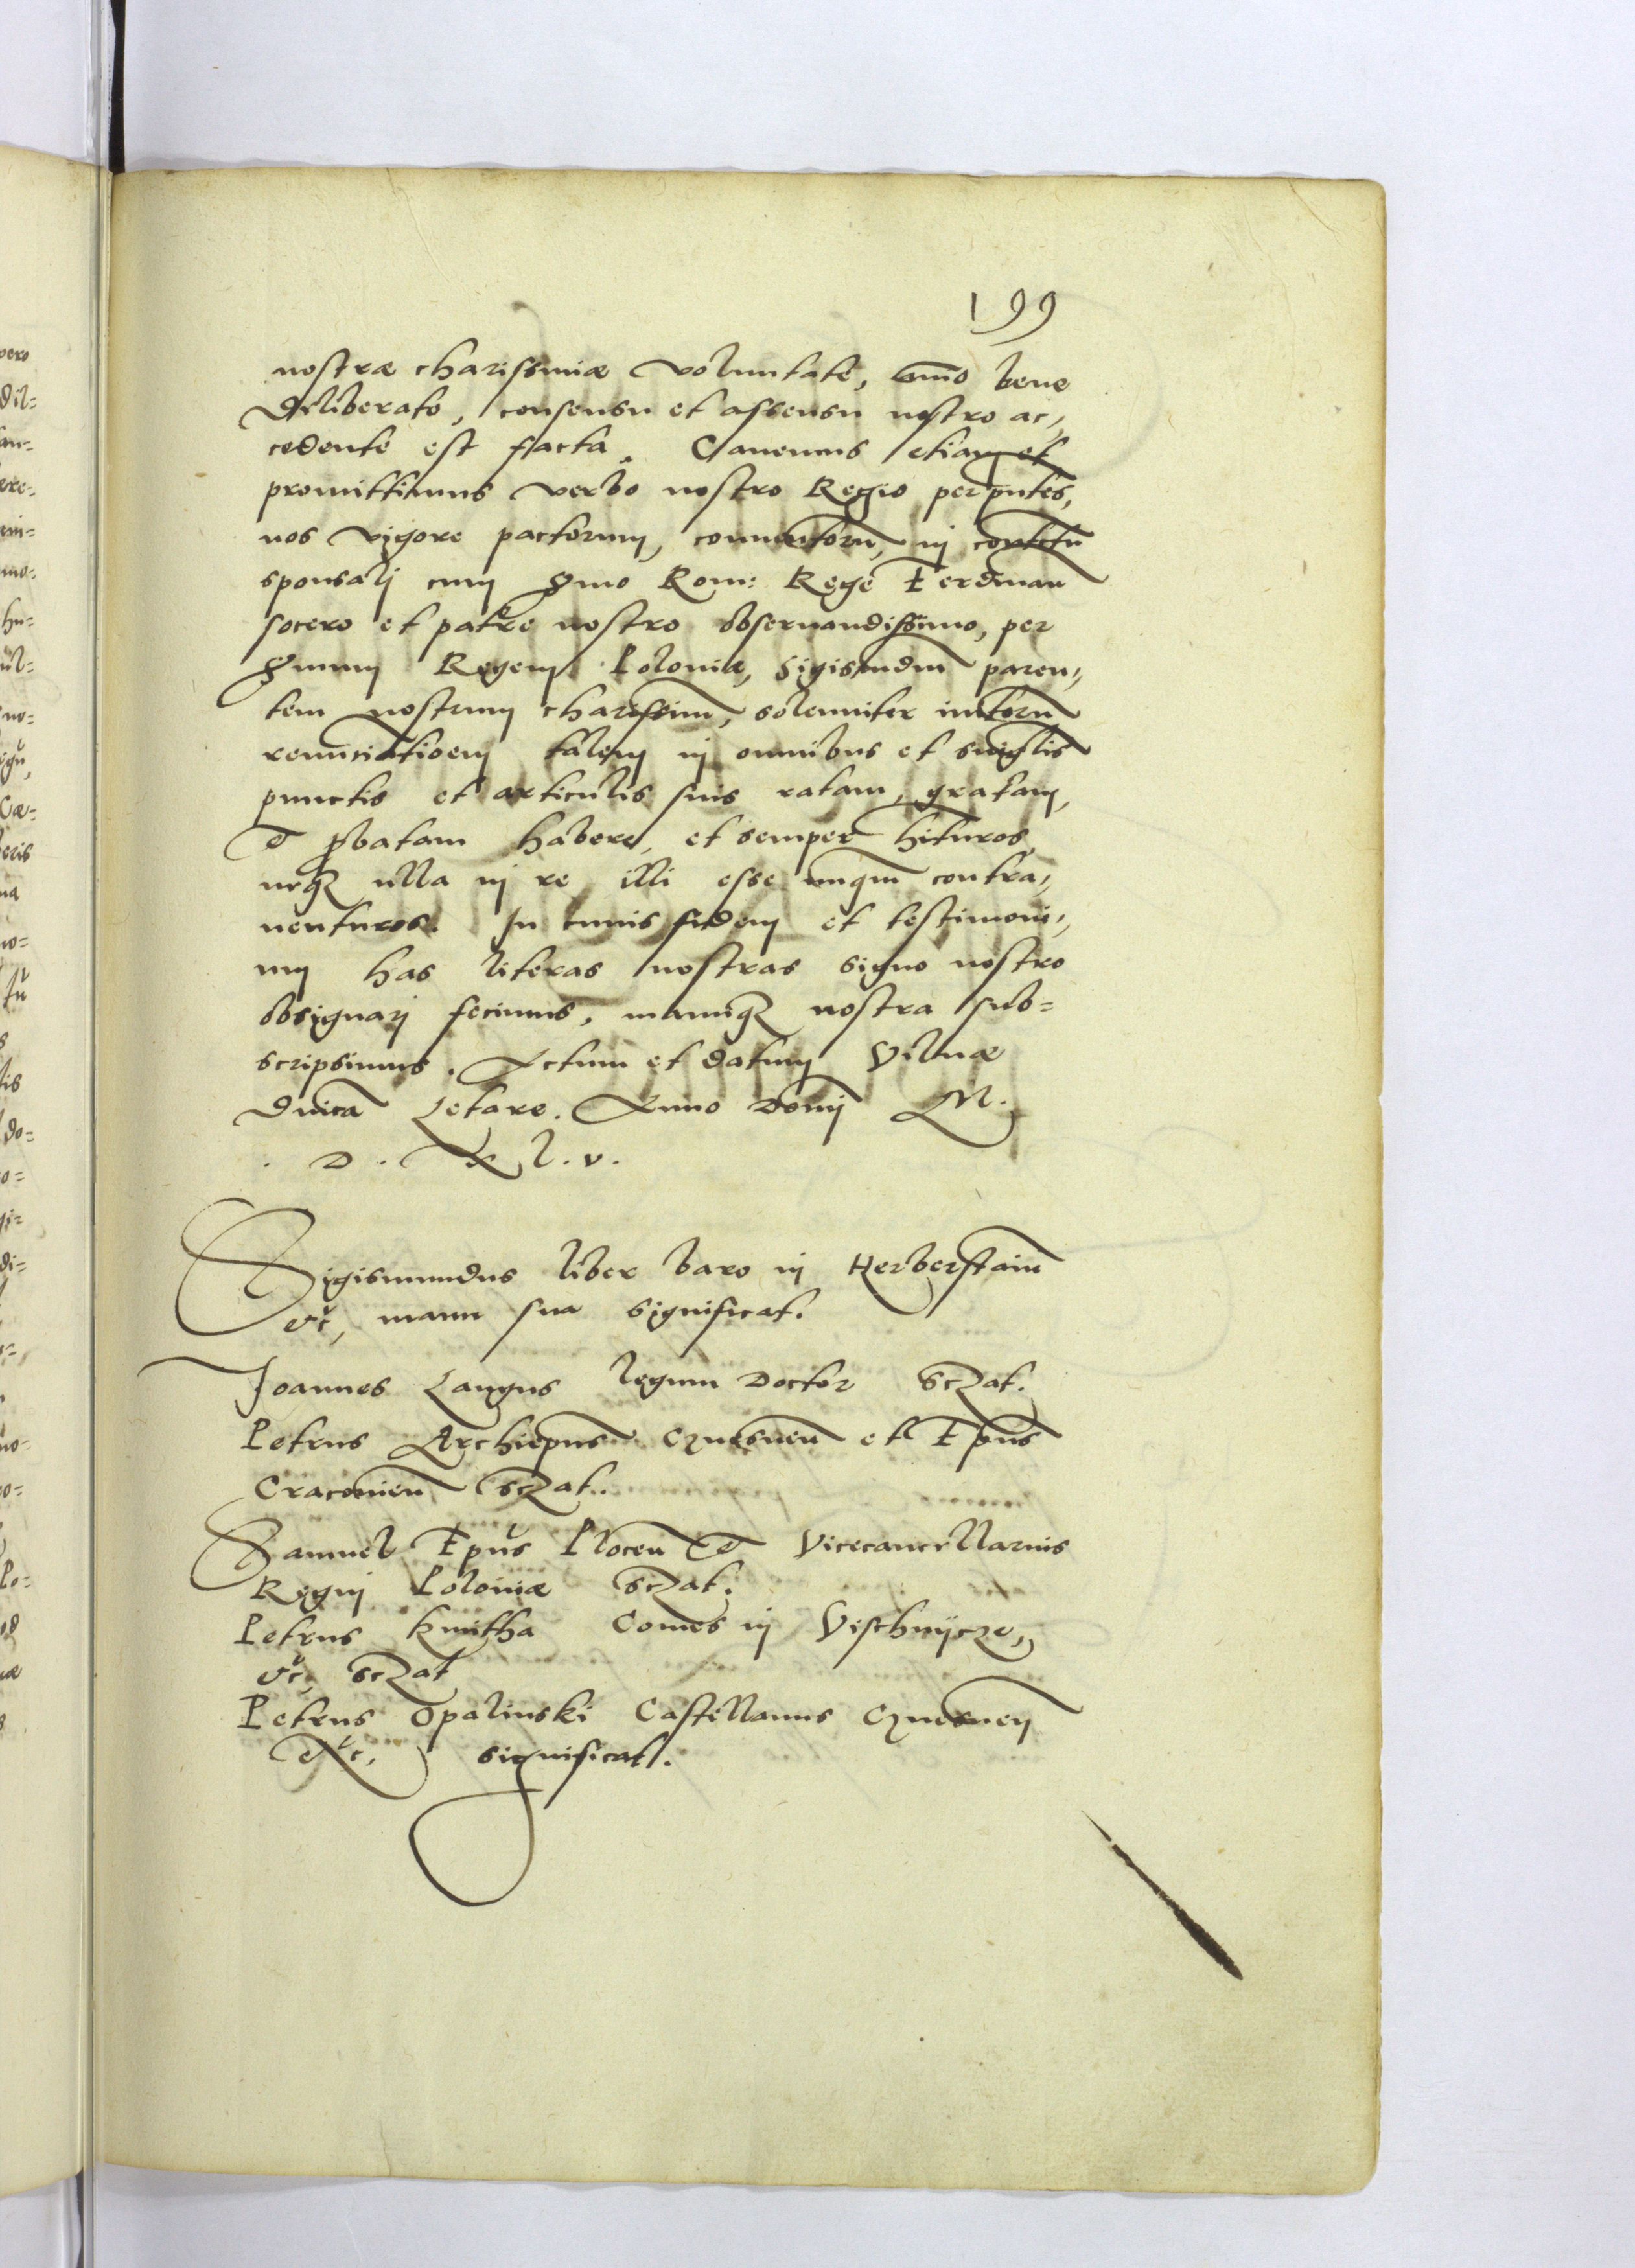 199
nostræ charissimæ voluntate, om̄o bene
deliberato, consensu et assensu nostro ac,,
cedente est facta. Cauemus etiam et
promittimus verbo nostro Regio per pn̄tes,
nos vigore pactorum, conuentorū, in contctū
sponsalj cum Sm̄o Rom: Rege Ferdinan
socero et patre nostro obseruandissimo, per
Sm̄um Regem Poloniæ, Sigismdm̄ paren,,
tem nostrum charissimū, solenniter initorū
renunciatioem talem in omnibus et singlis
punctis et articulis suis ratam, gratam,
& p̱batam habere, et semper hituros,
neqꝫ ulla in re illi esse unqm̄ contra,,
uenturos. In cuuis fidem et testimoni,,
um has literas nostras signo nostro
obsignarj fecimus, manuqꝫ nostra sub=
scripsimus. Actum et datum Vilnæ
Dnica Letare. Anno Domj M.
. D. Xl.v.
Sigismundus liber baro in Herberstain
&c, manu sua significat.
Joannes Langus legum Doctor sczat.
Petrus Archiepus Gnesnen et Epus
Cracouien sczat.
Samuel Epus Plocen & Vicecancellarius
Regni Poloniæ sczat.
Petrus Kmitha Comes in Vischnijcze,
&c, sczat
Petrus Opalinski Castellanus Gnesnen
&c, significat.